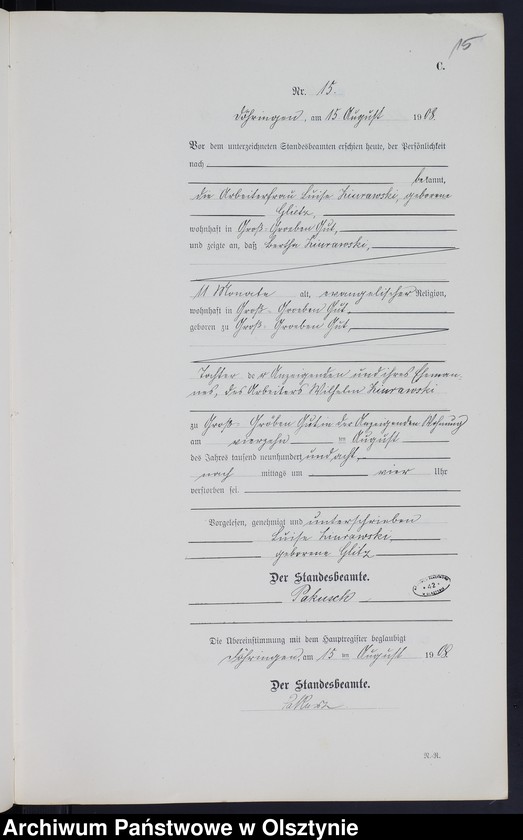 15
C.
Nr. 15.
Döhringen, am 15 August 1908.
Vor dem unterzeichneten Standesbeamten erschien heute, der Persönlichkeit
nach
bekannt,
die Arbeiterfrau Luise Zinrawski, geborene
Glietz,
wohnhaft in Groß-Groeben Gut,
und zeigte an, daß Bertha Zinrawski,
11 Monate alt, evangelischer Religion,
wohnhaft in Groß-Groeben Gut,
geboren zu Groß-Groeben Gut,
Tochter der Anzeigenden und ihres Eheman-
nes, des Arbeiters Wilhelm Zinrawski
zu Groß-Gröben Gut in der Anzeigenden Wohnung
am vierzehn ten August
des Jahres tausend neunhundert und acht,
nach mittags um vier Uhr
verstorben sei.
Vorgelesen, genehmigt und unterschrieben
Luise Zinrawski,
geborene Glitz
Der Standesbeamte.
Pakusch
Die Übereinstimmung mit dem Hauptregister beglaubigt
Döhringen, am 15 ten August 1908.
Der Standesbeamte.
R.-R.
Archiwum Państwowe w Olsztynie